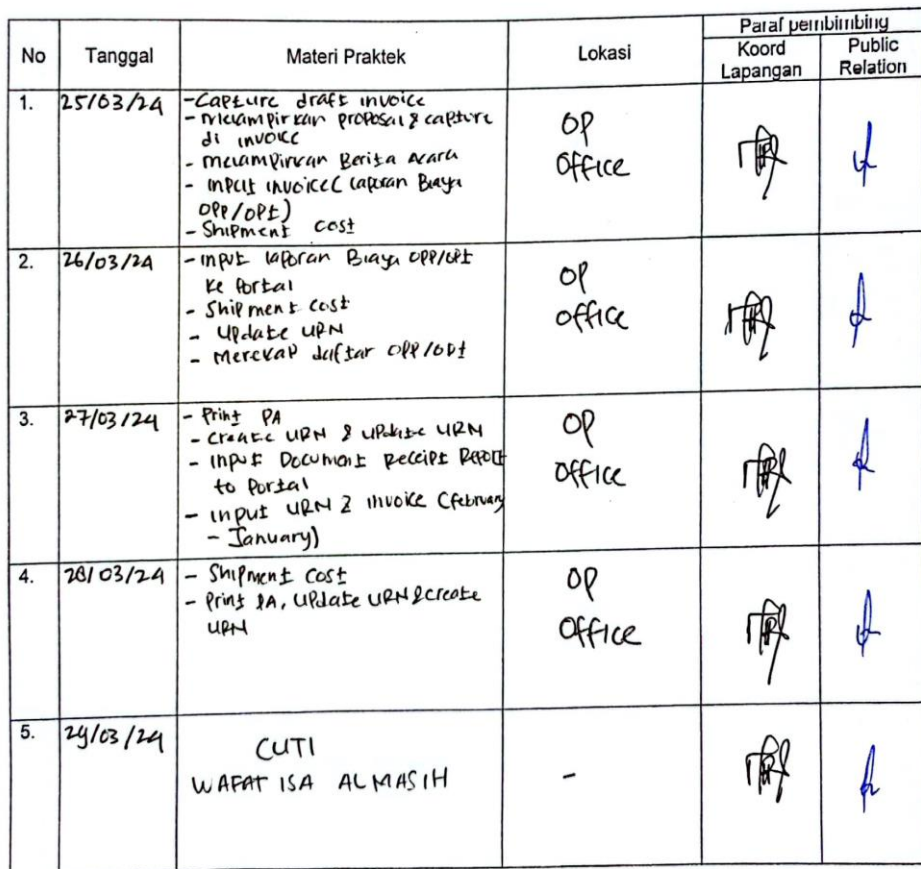 Paraf pembimbing
No Tanggal Materi Praktek Lokasi Koord Lapangan Public Relation
1. 25/03/24 -Capture draft invoice
- melampirkan proposal & capture
di invoice
- melampirkan Berita Acara
- Input invoice (Laporan Biaya
OPP/OPt)
- Shipment cost
OP
Office
2. 26/03/24 - Input laporan Biaya OPP/OPt
ke Portal
- Shipment cost
- Update URN
- Merekap daftar OPP/OPt
OP
Office
3. 27/03/24 - Print PA
- Create URN & Update URN
- Input Document Receipt Report
to Portal
- Input URN & Invoice (february
- January)
OP
Office
4. 28/03/24 - Shipment Cost
- Print PA, Update URN & Create
URN
OP
Office
5. 29/03/24 CUTI
WAFAT ISA ALMASIH
-